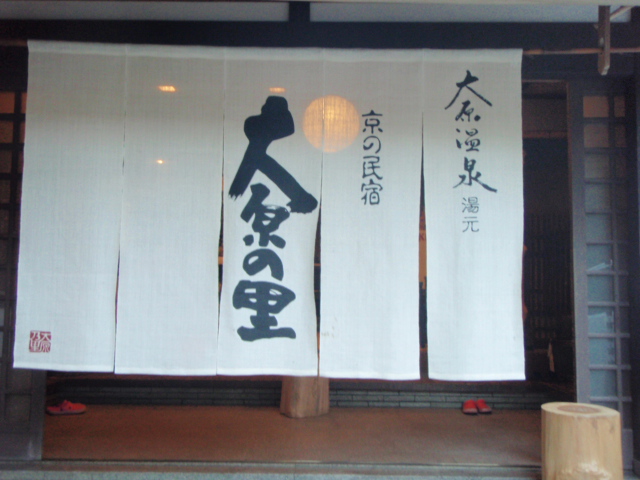 大原温泉
湯元
京の民宿
大原の里